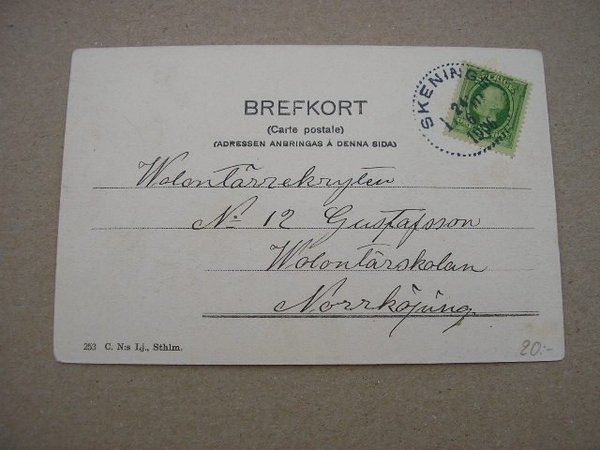 SKENINGE
SVERIGE
BREFKORT
(Carte postale)
(ADRESSEN ANBRINGAS Å DENNA SIDA)
Wolontärrekryten
No 12 Gustafsson
Wolontärskolan
Norrköping
253 C. N:s Lj., Sthlm.
20:-